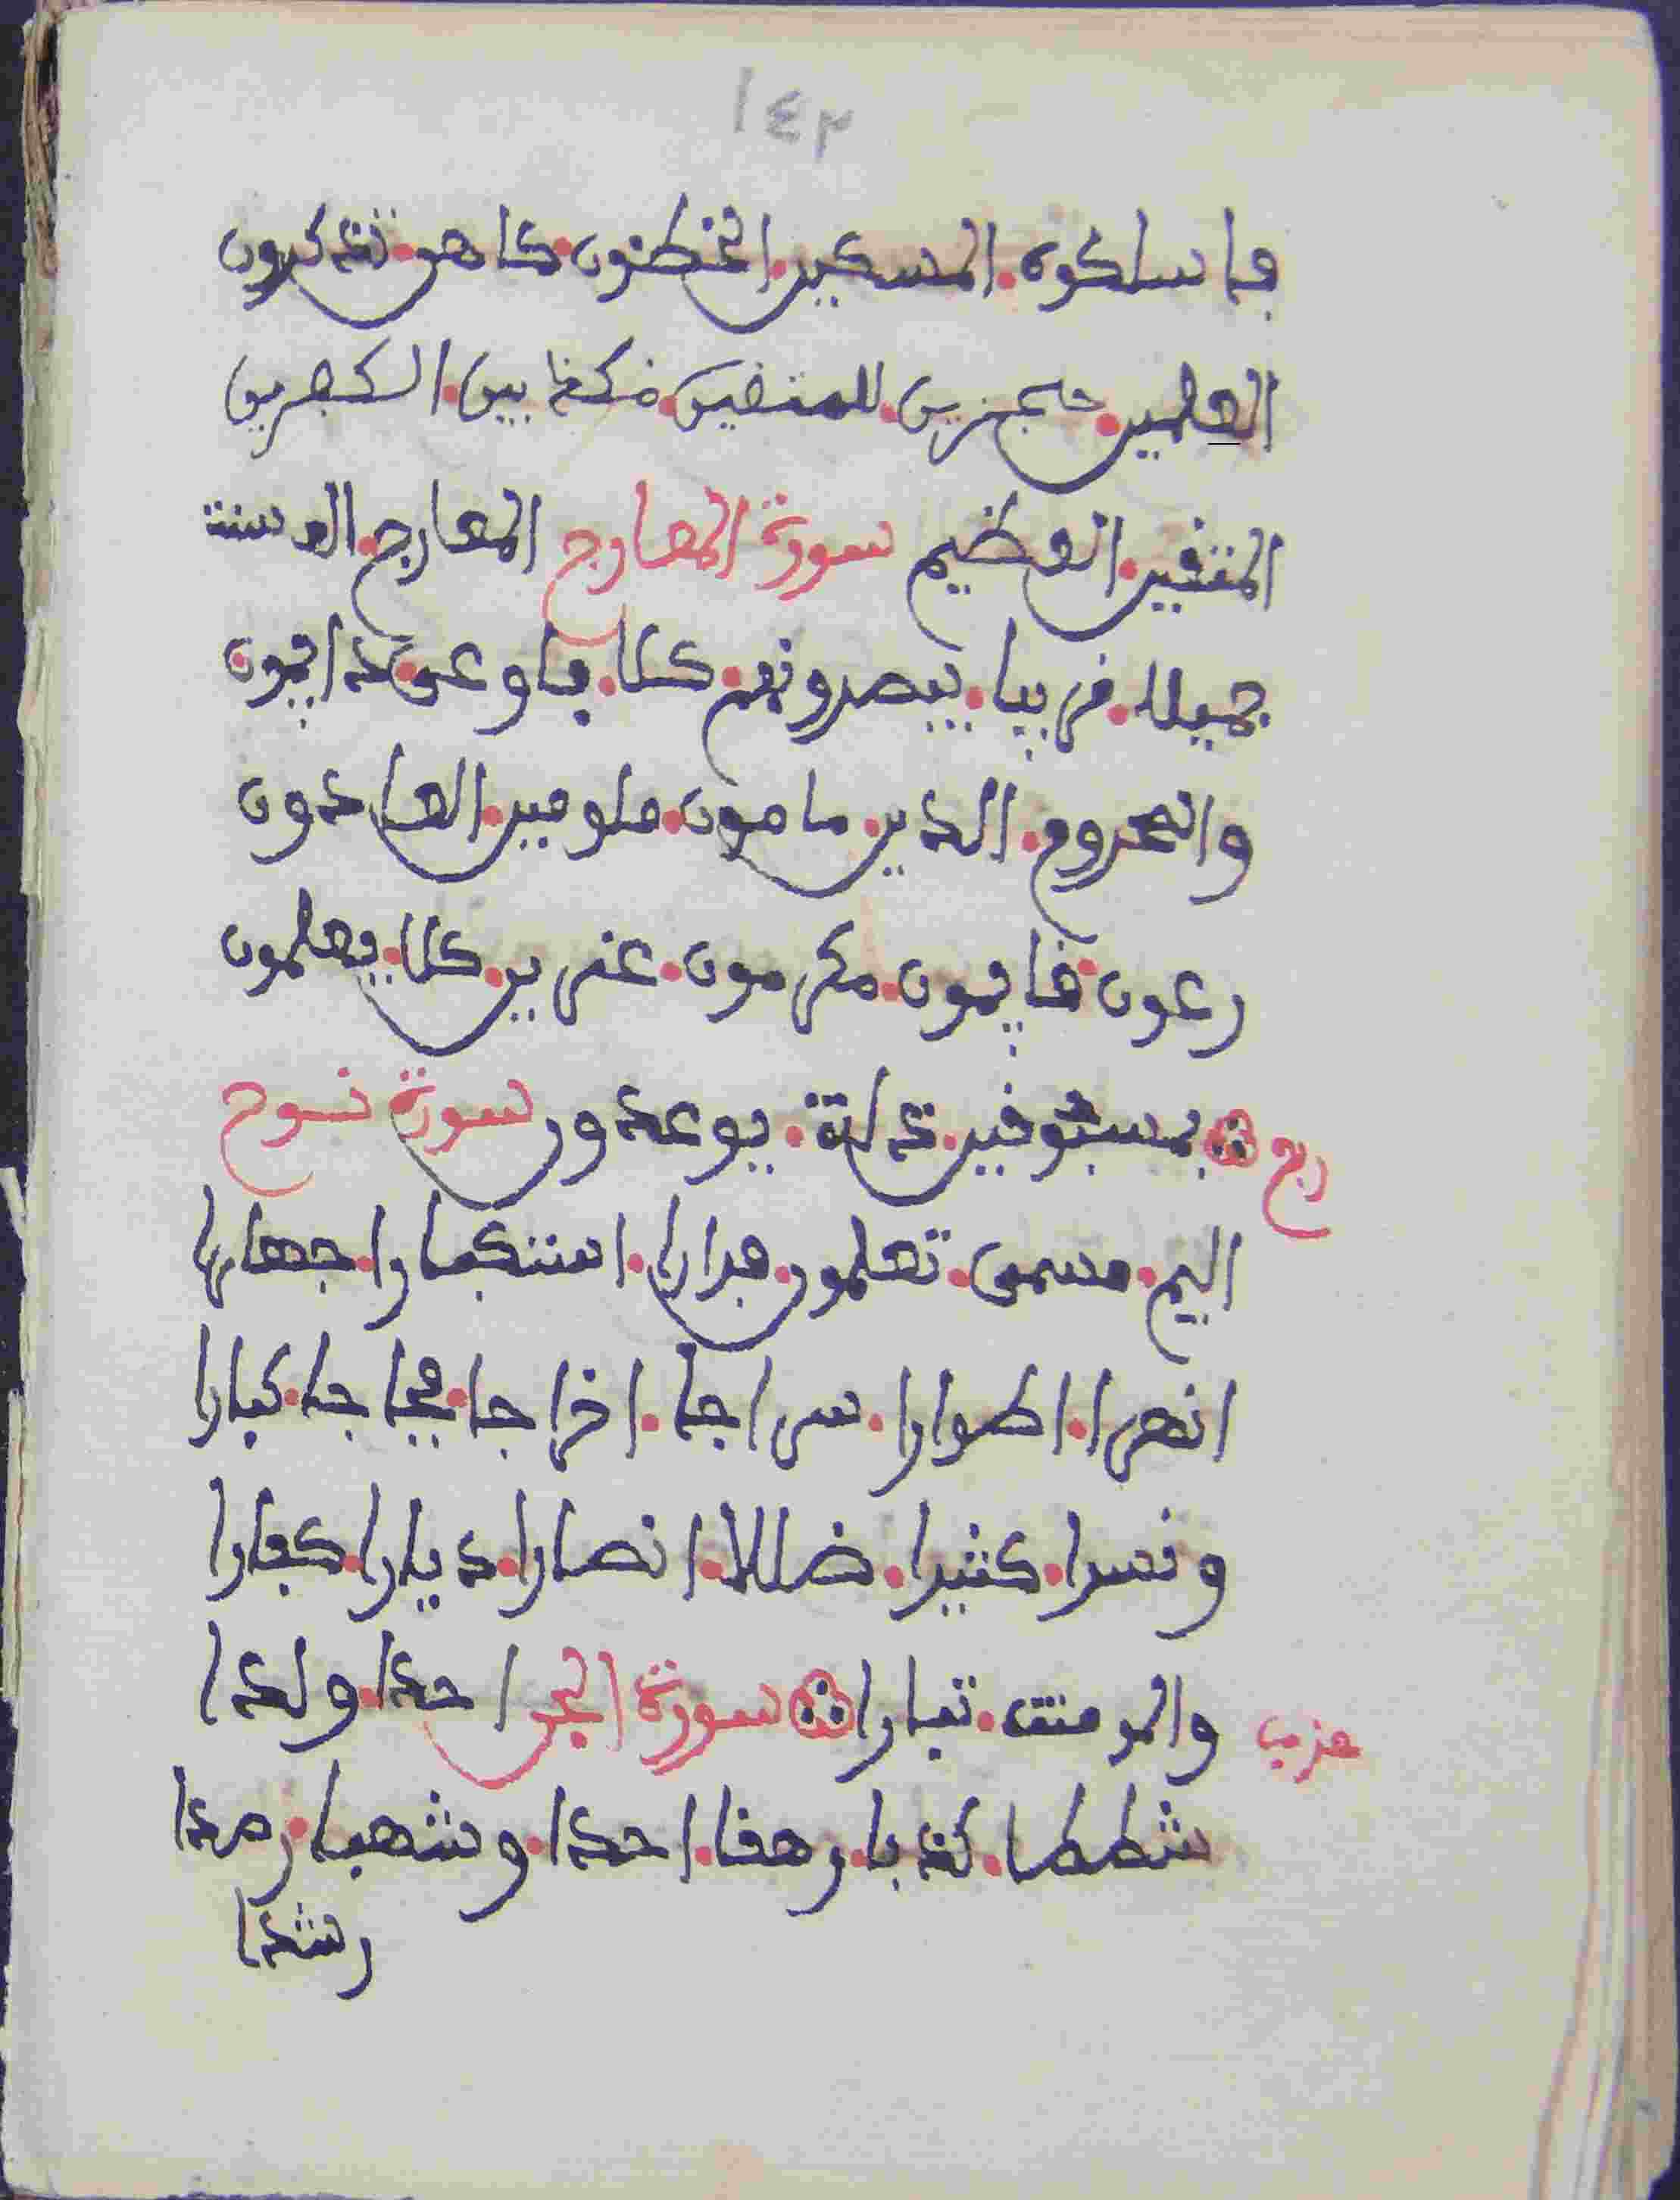 ١٤٢
فاسلكوه المسكين الخطئون كاهن تذكرون
العلمين حجزين للمتقين مكذبين الكفرين
المتقين العظيم سورة المعارج المعارج الف سنة
جميلا قريبا يبصرونهم كلا فاوعى دايمون
والمحروم الدين مامون ملومين العادون
رعون قايمون مكرمون عزين كلا يعلمون
ربع بمسبوقين ذلة يوعدون سورة نوح
اليم مسمى تعلمون فرارا استكبارا جهارا
انهرا اطوارا سراجا اخراجا فجاجا كبارا
ونسرا كثيرا ضللا انصارا ديارا كفارا
حزب والمومنت تبارا سورة الجن احدا ولدا
شططا كذبا رهقا احدا وشهبا رصدا
رشدا